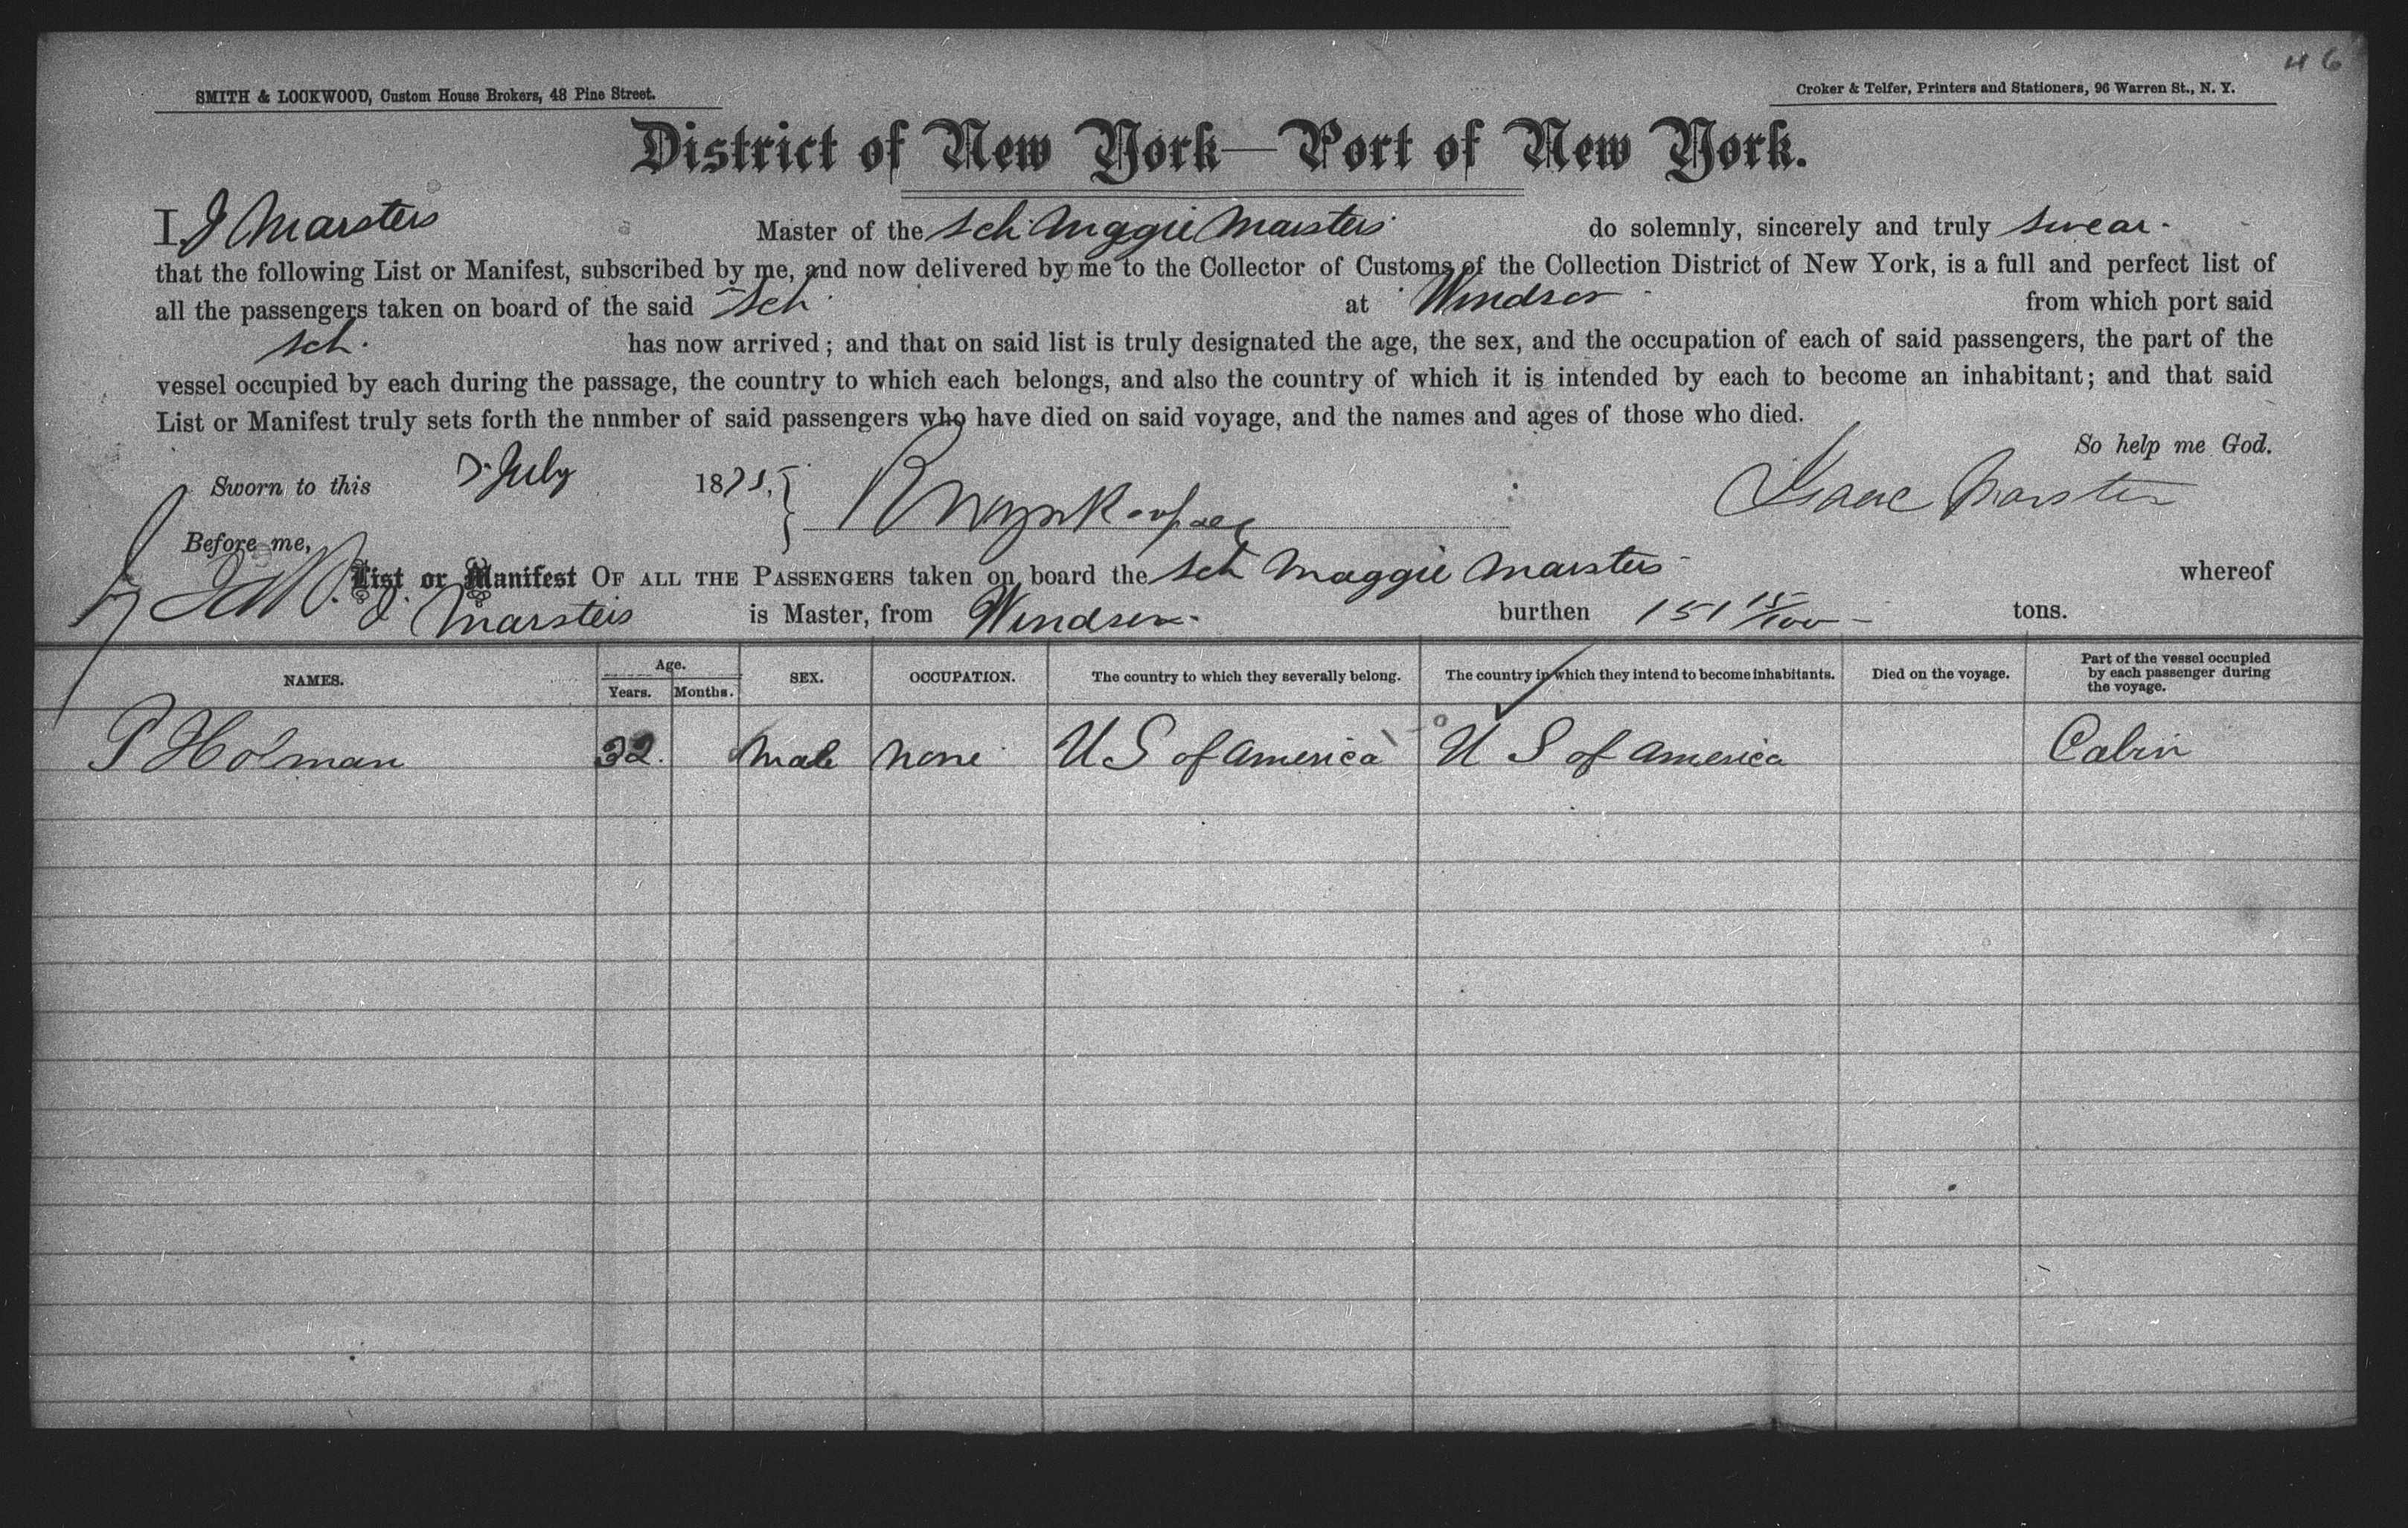 46
SMITH & LOOKWOOD, Custom House Brokers, 48 Pine Street.
Croker & Telfer, Printers and Stationers, 96 Warren St., N. Y.
District of New York—Port of New York.
I, J Marsters Master of the Sch Maggie Marsters do solemnly, sincerely and truly swear.
that the following List or Manifest, subscribed by me, and now delivered by me to the Collector of Customs of the Collection District of New York, is a full and perfect list of
all the passengers taken on board of the said Sch at Windsor from which port said
Sch. has now arrived; and that on said list is truly designated the age, the sex, and the occupation of each of said passengers, the part of the
vessel occupied by each during the passage, the country to which each belongs, and also the country of which it is intended by each to become an inhabitant; and that said
List or Manifest truly sets forth the nnmber of said passengers who have died on said voyage, and the names and ages of those who died.
So help me God.
Sworn to this 7 July 1875. Isaac Marsters
Before me,
List or Manifest OF ALL THE PASSENGERS taken on board the Sch Maggie Marsters whereof
J. Marsters is Master, from Windsor. burthen 151 15/100 tons.
NAMES. Age. Years. Months. SEX. OCCUPATION. The country to which they severally belong. The country in which they intend to become inhabitants. Died on the voyage. Part of the vessel occupied by each passenger during the voyage.
P Holman 32. Male None U S of America U S of America Cabin